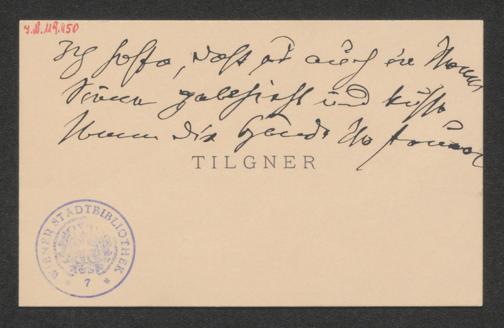 J.N. 119.450
Ich hoffe, daß es auch in Ihrem
Sinne geschieht und küsse
Ihnen die Hände Ihr treuer
TILGNER
WIENER STADTBIBLIOTHEK
7